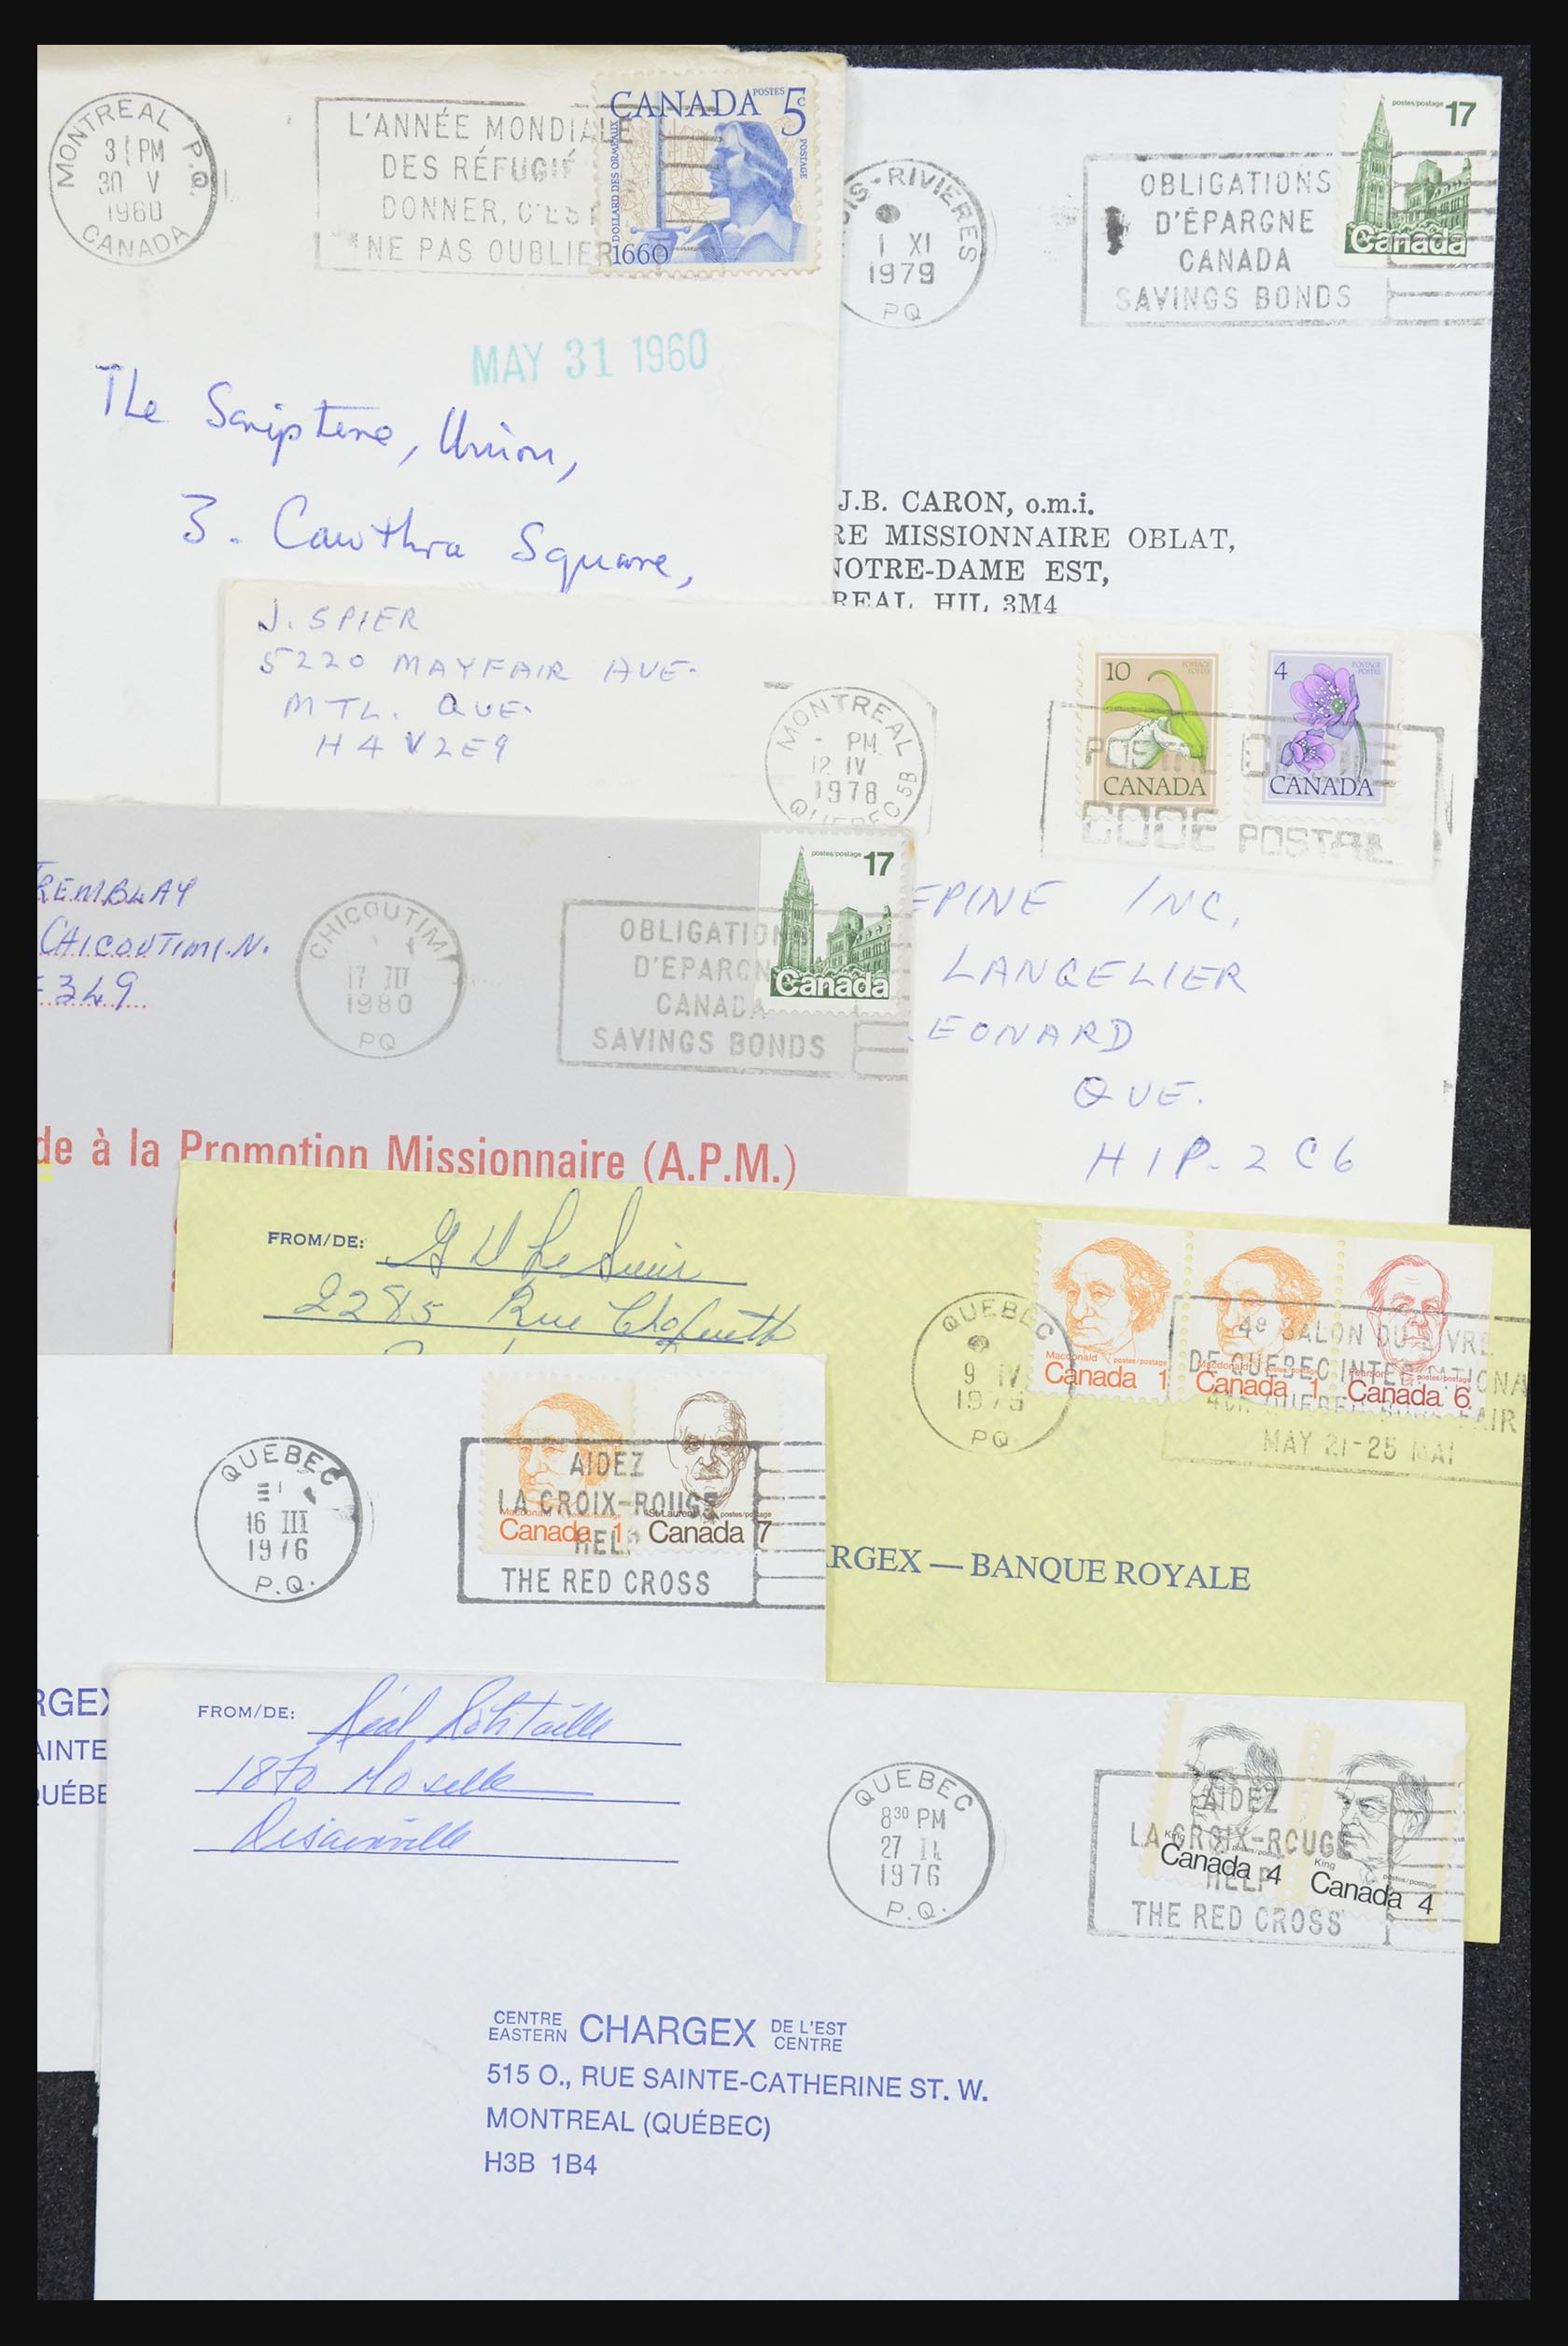 MONTREAL P.Q.
PM
30 V
1960
CANADA
L'ANNÉE MONDIALE
DES RÉFUGIÉ
DONNER, C'EST
NE PAS OUBLIER
CANADA POSTES 5c
POSTAGE
DOLLARD DES ORMEAUX
1660
MAY 31 1960
The Scripture, Union,
3. Cawthra Square,
IS-RIVIERES
1 XI
1979
PQ
OBLIGATIONS
D'ÉPARGNE
CANADA
SAVINGS BONDS
postes/postage 17
Canada
J.B. CARON, o.m.i.
RE MISSIONNAIRE OBLAT,
NOTRE-DAME EST,
REAL H1L 3M4
J. SPIER
5220 MAYFAIR AVE.
MTL. QUE.
H4V2E9
MONTREAL
- PM
12 IV
1978
QUEBEC 5B
10 POSTAGE POSTES
CANADA
4 POSTAGE POSTES
CANADA
CODE POSTAL
EPINE INC.
LANGELIER
EONARD
QUE.
H1P-2C6
REMBLAY
CHICOUTIMI.N.
349
CHICOUTIMI
17 III
1980
PQ
OBLIGATIONS
D'EPARGN
CANADA
SAVINGS BONDS
postes/postage 17
Canada
de à la Promotion Missionnaire (A.P.M.)
FROM/DE:
2285 Rue
QUEBEC
9 IV
PQ
Macdonald postes/postage
Canada 1
Macdonald postes/postage
Canada 1
Pearson postes/postage
Canada 6
4e SALON DU LIVRE
DE QUEBEC INTERNATIONA
4th QUEBEC BOOK FAIR
MAY 21-25 MAI
RGEX — BANQUE ROYALE
QUEBEC
16 III
1976
P.Q.
AIDEZ
LA CROIX-ROUGE
HELP
THE RED CROSS
Macdonald postes/postage
Canada 1
St.Laurent postes/postage
Canada 7
RGEX
AINTE
UÉBE
FROM/DE: Réal Robitaille
1870 Moselle
QUEBEC
8 30 PM
27 II
1976
P.Q.
AIDEZ
LA CROIX-ROUGE
HELP
THE RED CROSS
King postes/postage
Canada 4
King postes/postage
Canada 4
CENTRE EASTERN CHARGEX DE L'EST CENTRE
515 O., RUE SAINTE-CATHERINE ST. W.
MONTREAL (QUÉBEC)
H3B 1B4